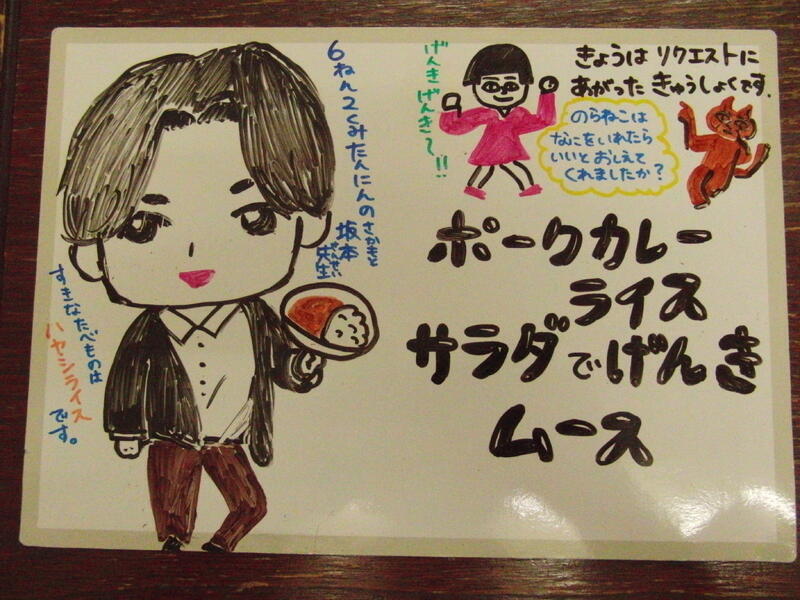 きょうは リクエストに
あがった きゅうしょくです.
げんきげんき〜!!
のらねこは
なにをいれたら
いいと おしえて
くれましたか?
6ねん2くみたんにんの
さかもと せんせい
坂本先生
すきなたべものは
ハヤシライス
です。
ポークカレー
ライス
サラダでげんき
ムース